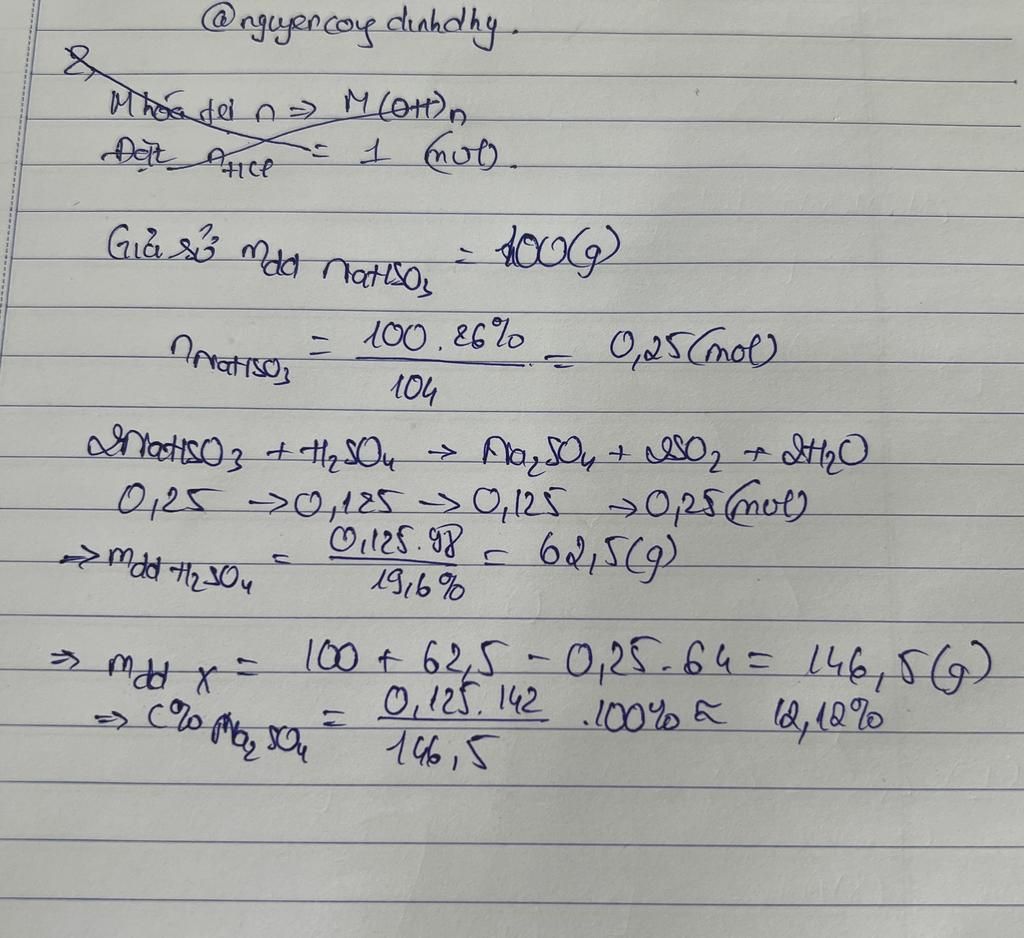 @nguyencongdinhdhy.
2,
M hoá trị n => M(OH)n
Đặt nHCl = 1 (mol).
Giả sử mdd NaHSO3 = 100(g)
nNaHSO3 = 100.26% / 104 = 0,25(mol)
2NaHSO3 + H2SO4 → Na2SO4 + 2SO2 + 2H2O
0,25 → 0,125 → 0,125 → 0,25(mol)
=> mdd H2SO4 = 0,125.98 / 19,6% = 62,5(g)
=> mdd X = 100 + 62,5 - 0,25.64 = 146,5(g)
=> C% Na2SO4 = 0,125.142 / 146,5 .100% ≈ 12,12%